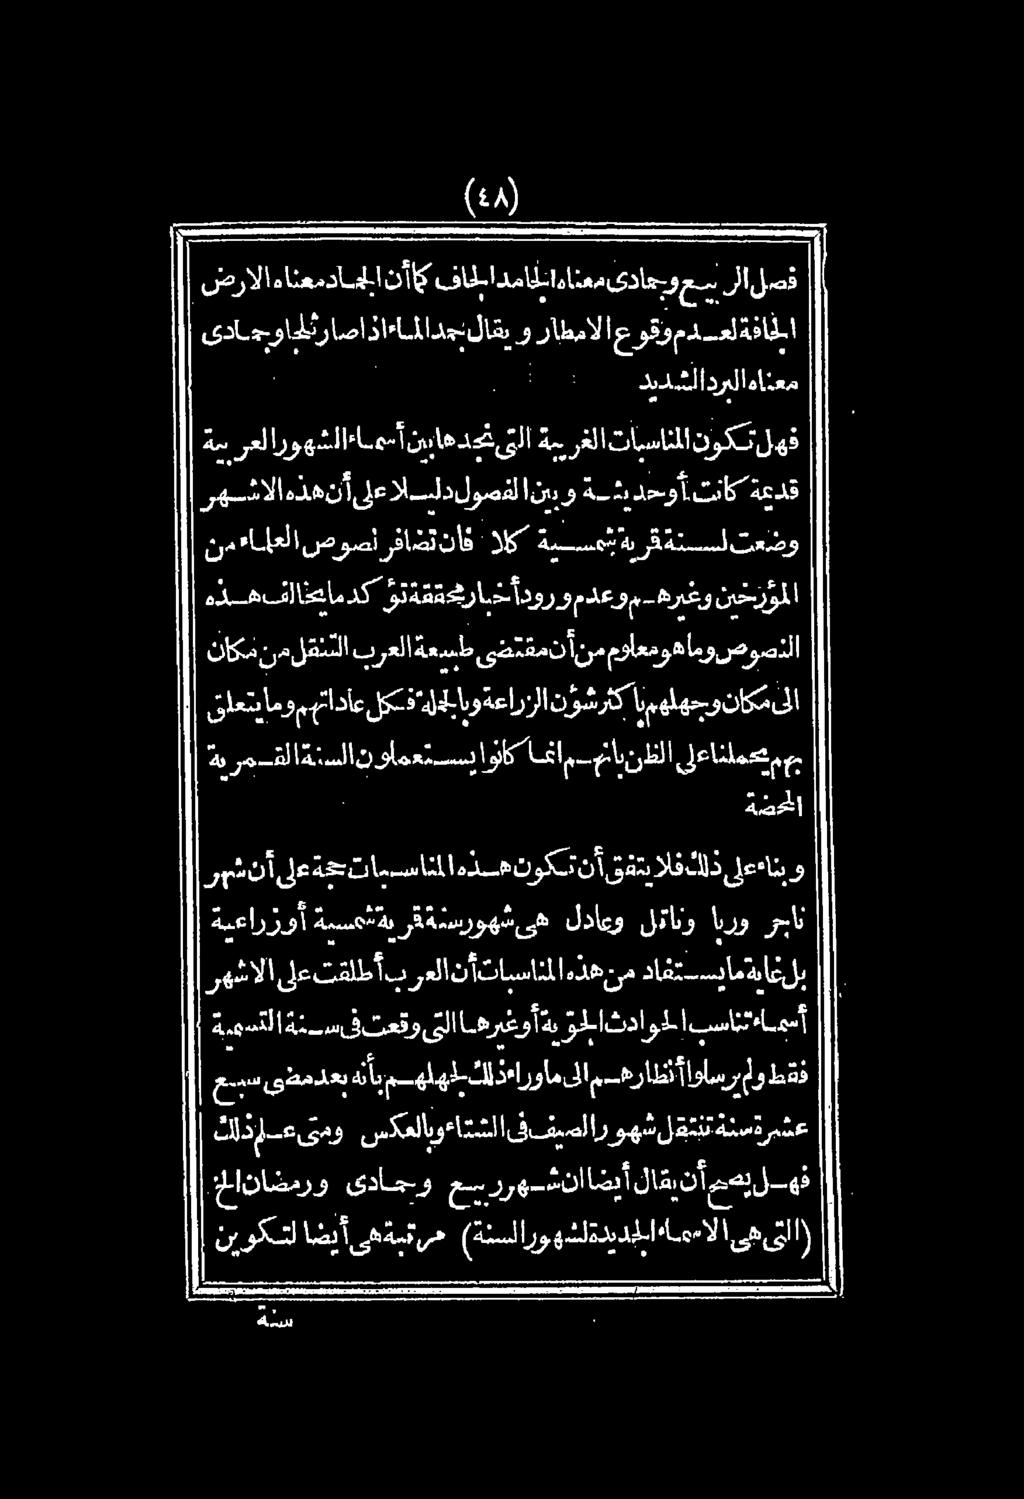 (٤٨)
فصل الربيع وجمادى معناه الجامد الجاف كما أن الجماد معناه الارض
الجافة لعدم وقوع الامطار ويقال جمد الماء اذا صار ثلجا وجمادى
معناه البرد الشديد
فهل تكون المناسبات الغريبة التى نجدها بين أسماء الشهور العربية
قديمة كانت أوحديثة وبين الفصول دليلا على أن هذه الاشهر
وضعت لسنة قرية شمسية كلا فان تضافر نصوص العلماء من
المؤرخين وغيرهم وعدم ورود أخبار محققة تؤكد ما يخالف هذه
النصوص وما هو معلوم من أن مقتضى طبيعة العرب التنقل من مكان
الى مكان وجهلهم باكثر شؤن الزراعة وبالجملة فكل عاداتهم وما يتعلق
بهم يحملنا على الظن بانهم انما كانوا يستعملون السنة القمرية
المحضة
وبناء على ذلك فلا يتفق أن تكون هذه المناسبات حجة على أن شهر
ناجر وربا وناتل وعادل هى شهور سنة قرية شمسية أوزراعية
بل غاية ما يستفاد من هذه المناسبات أن العرب أطلقت على الاشهر
أسماء تناسب الحوادث الجوية أوغيرها التى وقعت فى سنة التسمية
فقط ولم يرسلوا أنظارهم الى ماوراء ذلك لجهلهم بأنه بعد مضى سبع
عشرة سنة تنتقل شهور الصيف فى الشتاء وبالعكس ومتى علم ذلك
فهل يصح أن يقال أيضا ان شهر ربيع وجمادى ورمضان الخ
(التى هى الاسماء الجديدة لشهور السنة) مرتبة هى أيضا لتكوين
سنة